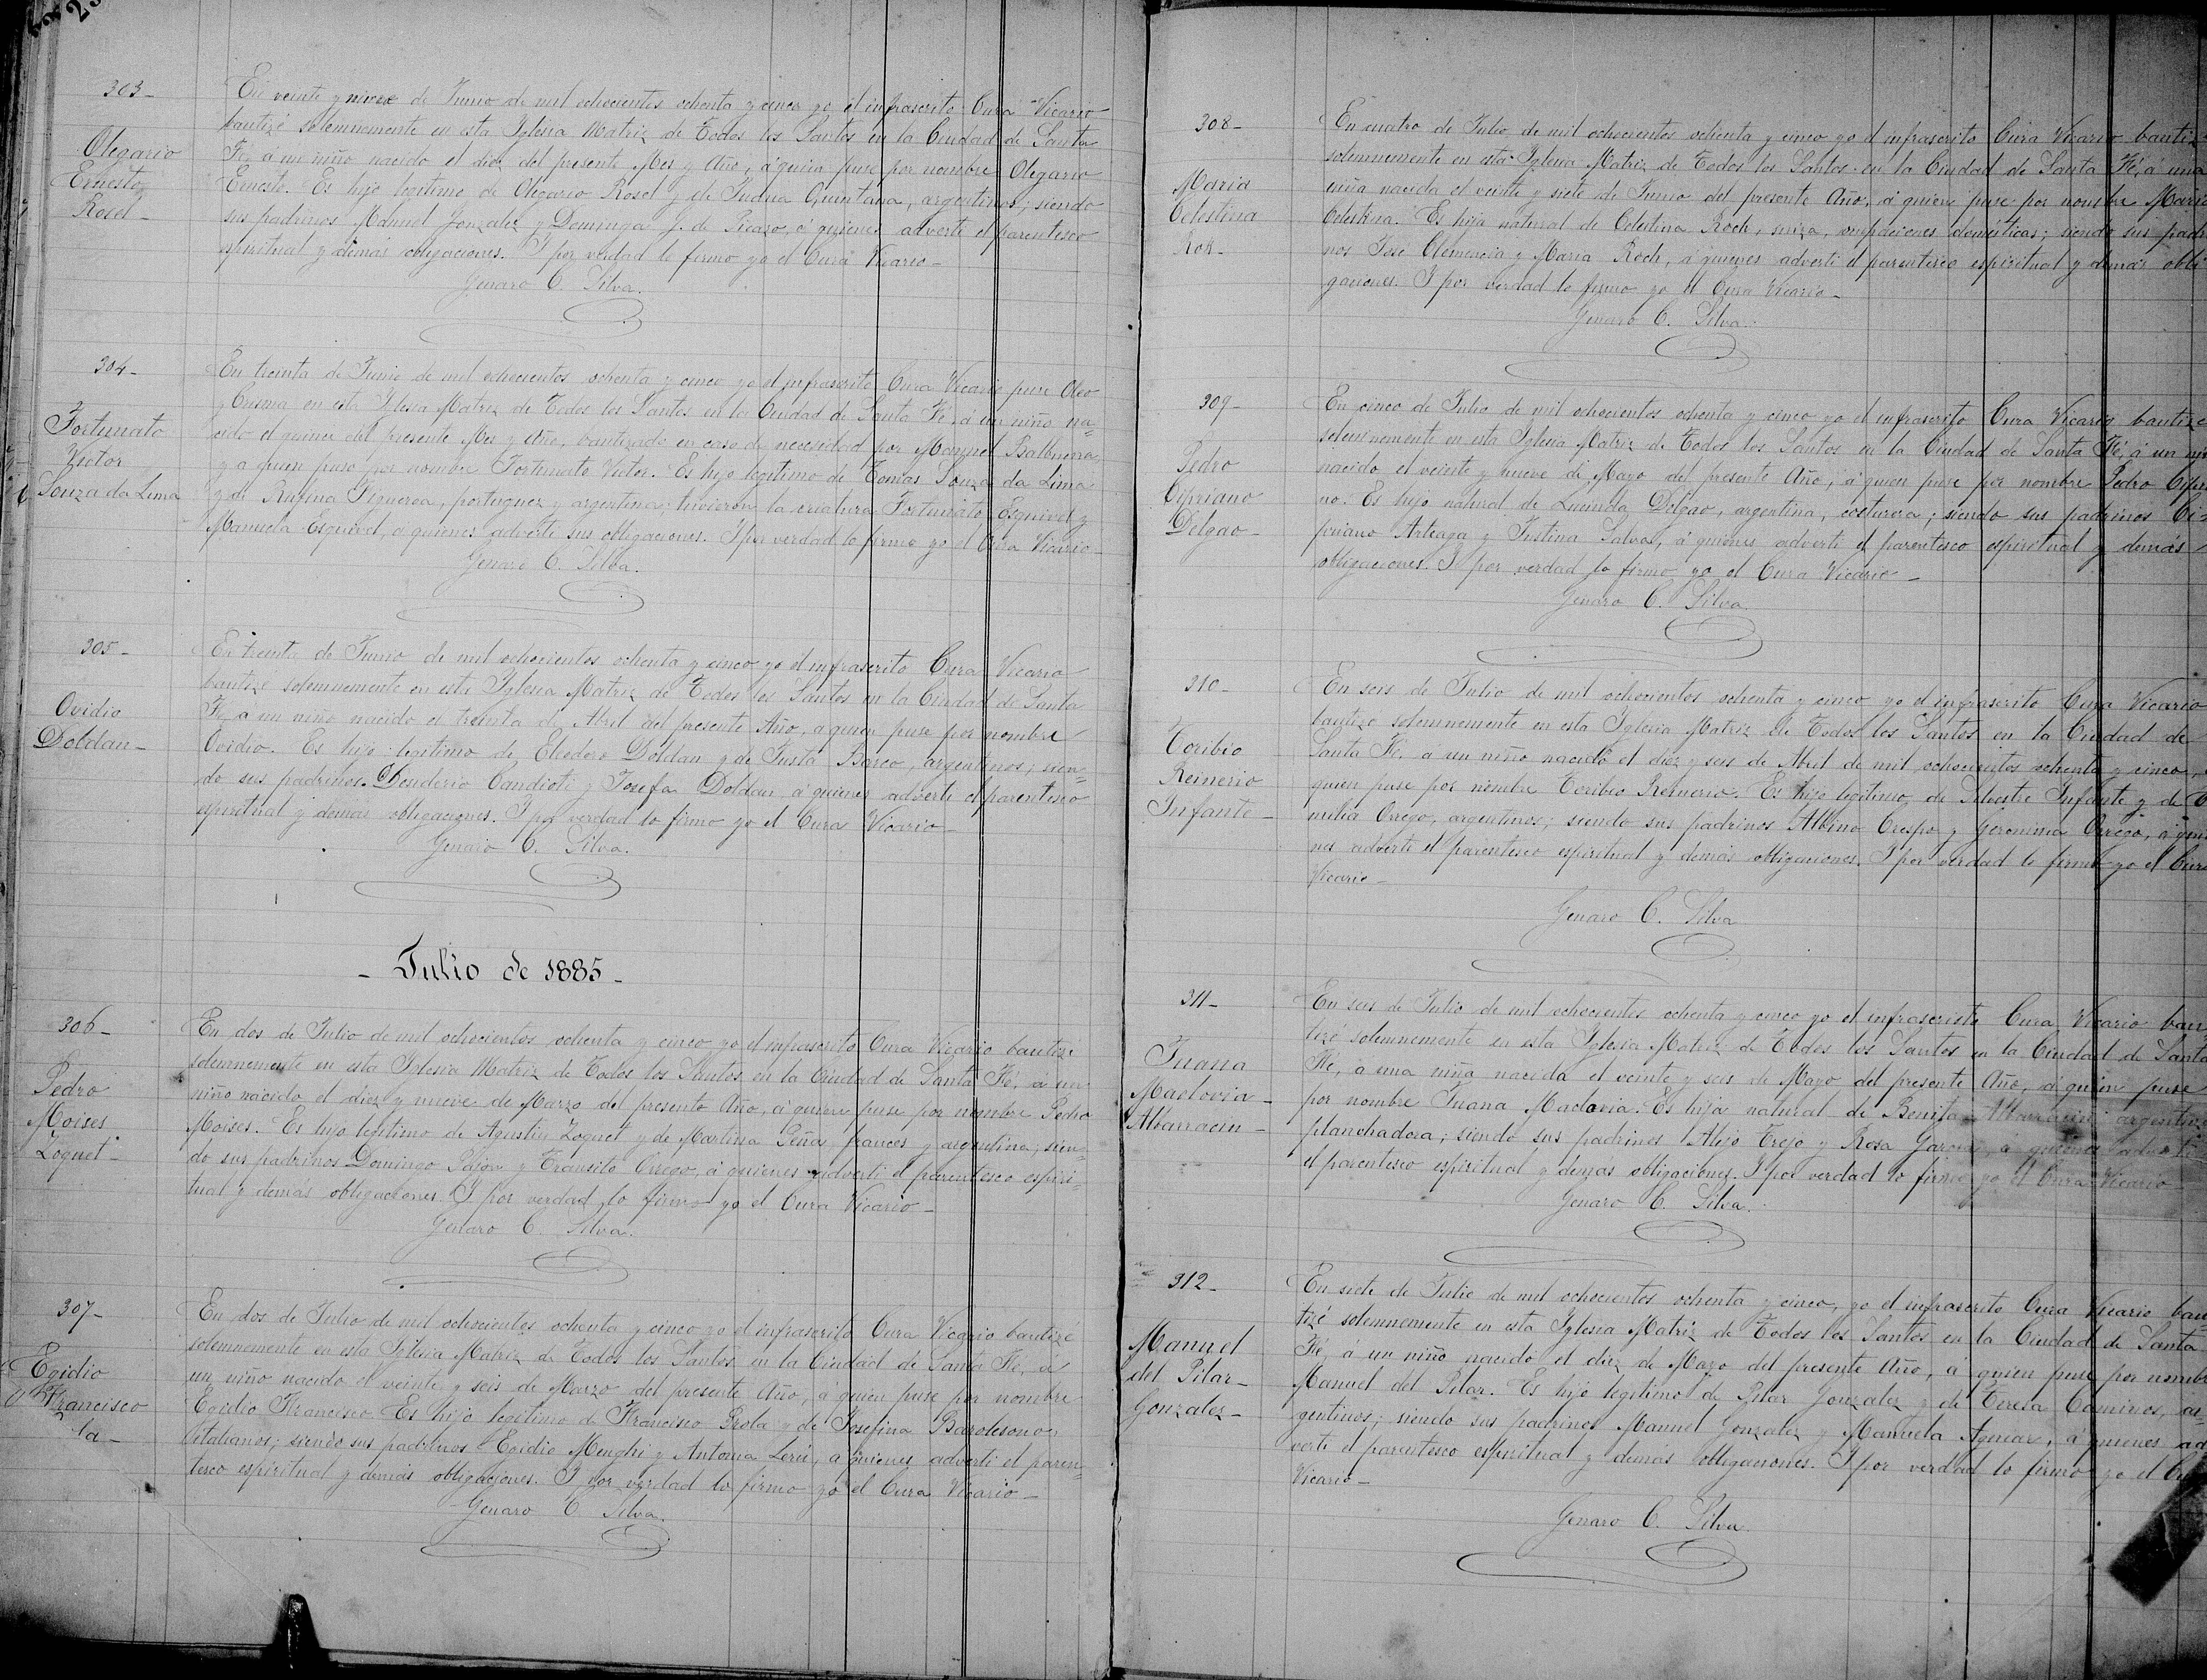 303-
Olegario
Ernesto
Rosel-
En veinte y nueve de Junio de mil ochocientos ochenta y cinco yo el infrascrito Cura Vicario
bautizé solemnemente en esta Iglesia Matriz de Todos los Santos en la Ciudad de Santa
Fé, á un niño nacido el diez del presente Mes y Año, á quien puse por nombre Olegario
Ernesto. Es hijo legitimo de Olegario Rosel y de Juana Quintana, argentinos; siendo
sus padrinos Manuel Gonzalez y Dominga G. de Picazo, á quienes advertí el parentesco
espiritual y demás obligaciones. I por verdad lo firmo yo el Cura Vicario-
Genaro C. Silva.
304-
Fortunato
Victor
Souza da Lima
En treinta de Junio de mil ochocientos ochenta y cinco yo el infrascrito Cura Vicario puse Oleo
y Crisma en esta Iglesia Matriz de Todos los Santos en la Ciudad de Santa Fé, á un niño na-
cido el quince del presente Mes y Año, bautizado en caso de necesidad por Manuel Balbuena,
y a quien puso por nombre Fortunato Victor. Es hijo legitimo de Tomás Souza da Lima
y de Rufina Figueroa, portuguez y argentina; tuvieron la criatura Fortunato Esquivel y
Manuela Esquivel, á quienes advertí sus obligaciones. I por verdad lo firmo yo el Cura Vicario-
Genaro C. Silva.
305-
Ovidio
Doldan-
En treinta de Junio de mil ochocientos ochenta y cinco yo el infrascrito Cura Vicario
bautizé solemnemente en esta Iglesia Matriz de Todos los Santos en la Ciudad de Santa
Fé, á un niño nacido el treinta de Abril del presente Año, a quien puse por nombre
Ovidio. Es hijo legitimo de Eleodoro Doldan y de Justa Barco, argentinos; sien-
do sus padrinos Desiderio Candioti y Josefa Doldan á quienes advertí el parentesco
espiritual y demás obligaciones. I por verdad lo firmo yo el Cura Vicario-
Genaro C. Silva.
- Julio de 1885-
306-
Pedro
Moises
Zoguet-
En dos de Julio de mil ochocientos ochenta y cinco yo el infrascrito Cura Vicario bautizé
solemnemente en esta Iglesia Matriz de Todos los Santos en la Ciudad de Santa Fé, á un
niño nacido el diez y nueve de Marzo del presente Año, á quien puse por nombre Pedro
Moises. Es hijo legitimo de Agustin Zoguet y de Martina Peña, frances y argentina; sien-
do sus padrinos Domingo Pajon y Transito Orrego, á quienes advertí el parentesco espiri-
tual y demás obligaciones. I por verdad lo firmo yo el Cura Vicario-
Genaro C. Silva.
307-
Egidio
Francisco
En dos de Julio de mil ochocientos ochenta y cinco yo el infrascrito Cura Vicario bautizé
solemnemente en esta Iglesia Matriz de Todos los Santos en la Ciudad de Santa Fé, á
un niño nacido el veinte y seis de Marzo del presente Año, á quien puse por nombre
Egidio Francisco. Es hijo legitimo de Francisco y de Josefina
italianos; siendo sus padrinos Egidio Menghi y Antonia á quienes advertí el paren-
tesco espiritual y demás obligaciones. I por verdad lo firmo yo el Cura Vicario-
Genaro C. Silva.
308-
Maria
Celestina
Rok-
En cuatro de Julio de mil ochocientos ochenta y cinco yo el infrascrito Cura Vicario bautizé
solemnemente en esta Iglesia Matriz de Todos los Santos en la Ciudad de Santa Fé, á una
niña nacida el veinte y siete de Junio del presente Año, á quien puse por nombre Maria
Celestina. Es hija natural de Celestina Roch, suiza, domésticas; siendo sus padri
nos José Clemencia y Maria Roch, á quienes advertí el parentesco espiritual y demás obli
gaciones. I por verdad lo firmo yo el Cura Vicario-
Genaro C. Silva.
309-
Pedro
Cipriano
Delgao-
En cinco de Julio de mil ochocientos ochenta y cinco yo el infrascrito Cura Vicario bautizé
solemnemente en esta Iglesia Matriz de Todos los Santos en la Ciudad de Santa Fé, á un
nacido el veinte y nueve de Mayo del presente Año, á quien puse por nombre Pedro Cipria
no. Es hijo natural de Lucinda Delgao, argentina, costurera; siendo sus padrinos Ci-
priano Arteaga y Justina Salva, á quienes advertí el parentesco espiritual y demás
obligaciones. I por verdad lo firmo yo el Cura Vicario-
Genaro C. Silva.
310-
Toribio
Reinerio
Infante-
En seis de Julio de mil ochocientos ochenta y cinco yo el infrascrito Cura Vicario
bautizé solemnemente en esta Iglesia Matriz de Todos los Santos en la Ciudad de
Santa Fé, a un niño nacido el diez y seis de Abril de mil ochocientos ochenta y cinco,
quien puse por nombre Toribio Reinerio. Es hijo legitimo de Silvestre Infante y de
milia Orrego, argentinos; siendo sus padrinos Albino Crespo y Geronima Orrego, á quie
nes advertí el parentesco espiritual y demás obligaciones. I por verdad lo firmo yo el Cura
Vicario-
Genaro C. Silva
311-
Juana
Maclovia
Albarracin-
En seis de Julio de mil ochocientos ochenta y cinco yo el infrascristo Cura Vicario bau
tizé solemnemente en esta Iglesia Matriz de Todos los Santos en la Ciudad de Santa
Fé, a una niña nacida el veinte y seis de Mayo del presente Año, á quien puse
por nombre Juana Maclovia. Es hija natural de Benita Albarracin, argentina
planchadora; siendo sus padrinos Alejo Trejo y Rosa á quienes advertí
el parentesco espiritual y demás obligaciones. I por verdad lo firmo yo el Cura Vicario
Genaro C. Silva.
312-
Manuel
del Pilar-
Gonzalez-
En siete de Julio de mil ochocientos ochenta y cinco, yo el infrascrito Cura Vicario bau-
tizé solemnemente en esta Iglesia Matriz de Todos los Santos en la Ciudad de Santa
Fé, a un niño nacido el diez de Mayo del presente Año, á quien puse por nombre
Manuel del Pilar. Es hijo legitimo de Pilar Gonzalez y de Teresa ar-
gentinos; siendo sus padrinos Manuel Gonzalez y Manuela á quienes ad
vertí el parentesco espiritual y demás obligaciones. I por verdad lo firmo yo el
Vicario-
Genaro C. Silva.